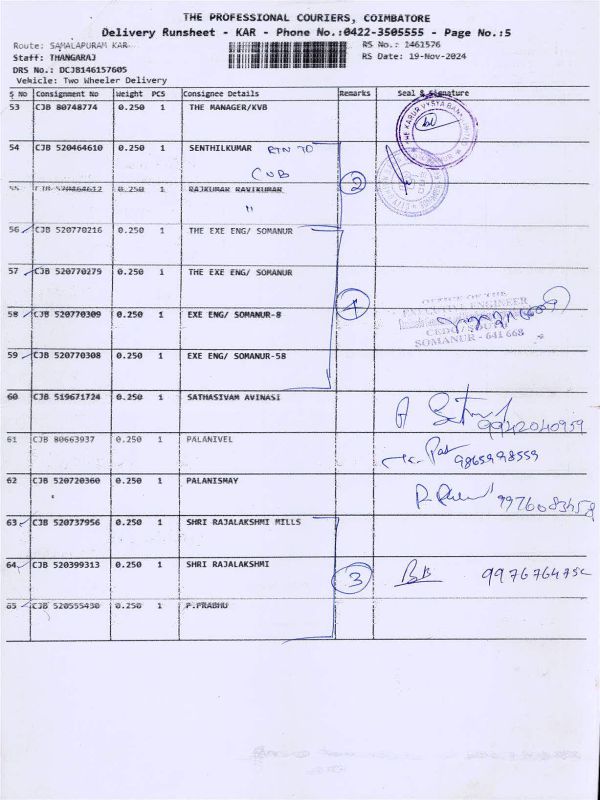 THE PROFESSIONAL COURIERS, COIMBATORE
Delivery Runsheet - KAR - Phone No.:0422-3505555 - Page No.:5
Route: SAMALAPURAM KAR RS No.: 1461576
Staff: THANGARAJ RS Date: 19-Nov-2024
DRS No.: DCJB146157605
Vehicle: Two Wheeler Delivery
S No Consignment No Weight PCS Consignee Details Remarks Seal & Signature
53 CJB 80748774 0.250 1 THE MANAGER/KVB
THE KARUR VYSYA BANK LIMITED
54 CJB 520464610 0.250 1 SENTHILKUMAR RTN TO
CUB
55 CJB 520464612 0.250 1 RAJKUMAR RAVIKUMAR 2
"
56 CJB 520770216 0.250 1 THE EXE ENG/ SOMANUR
57 CJB 520770279 0.250 1 THE EXE ENG/ SOMANUR
OFFICE OF THE
EXECUTIVE ENGINEER
58 CJB 520770309 0.250 1 EXE ENG/ SOMANUR-8 4
CEDC / SOUTH
SOMANUR - 641 668
59 CJB 520770308 0.250 1 EXE ENG/ SOMANUR-58
60 CJB 519671724 0.250 1 SATHASIVAM AVINASI
9942040959
61 CJB 80663937 0.250 1 PALANIVEL
9865998559
62 CJB 520720360 0.250 1 PALANISMAY
9976083458
63 CJB 520737956 0.250 1 SHRI RAJALAKSHMI MILLS
64 CJB 520399313 0.250 1 SHRI RAJALAKSHMI 3 BB
65 CJB 520555430 0.250 1 P.PRABHU